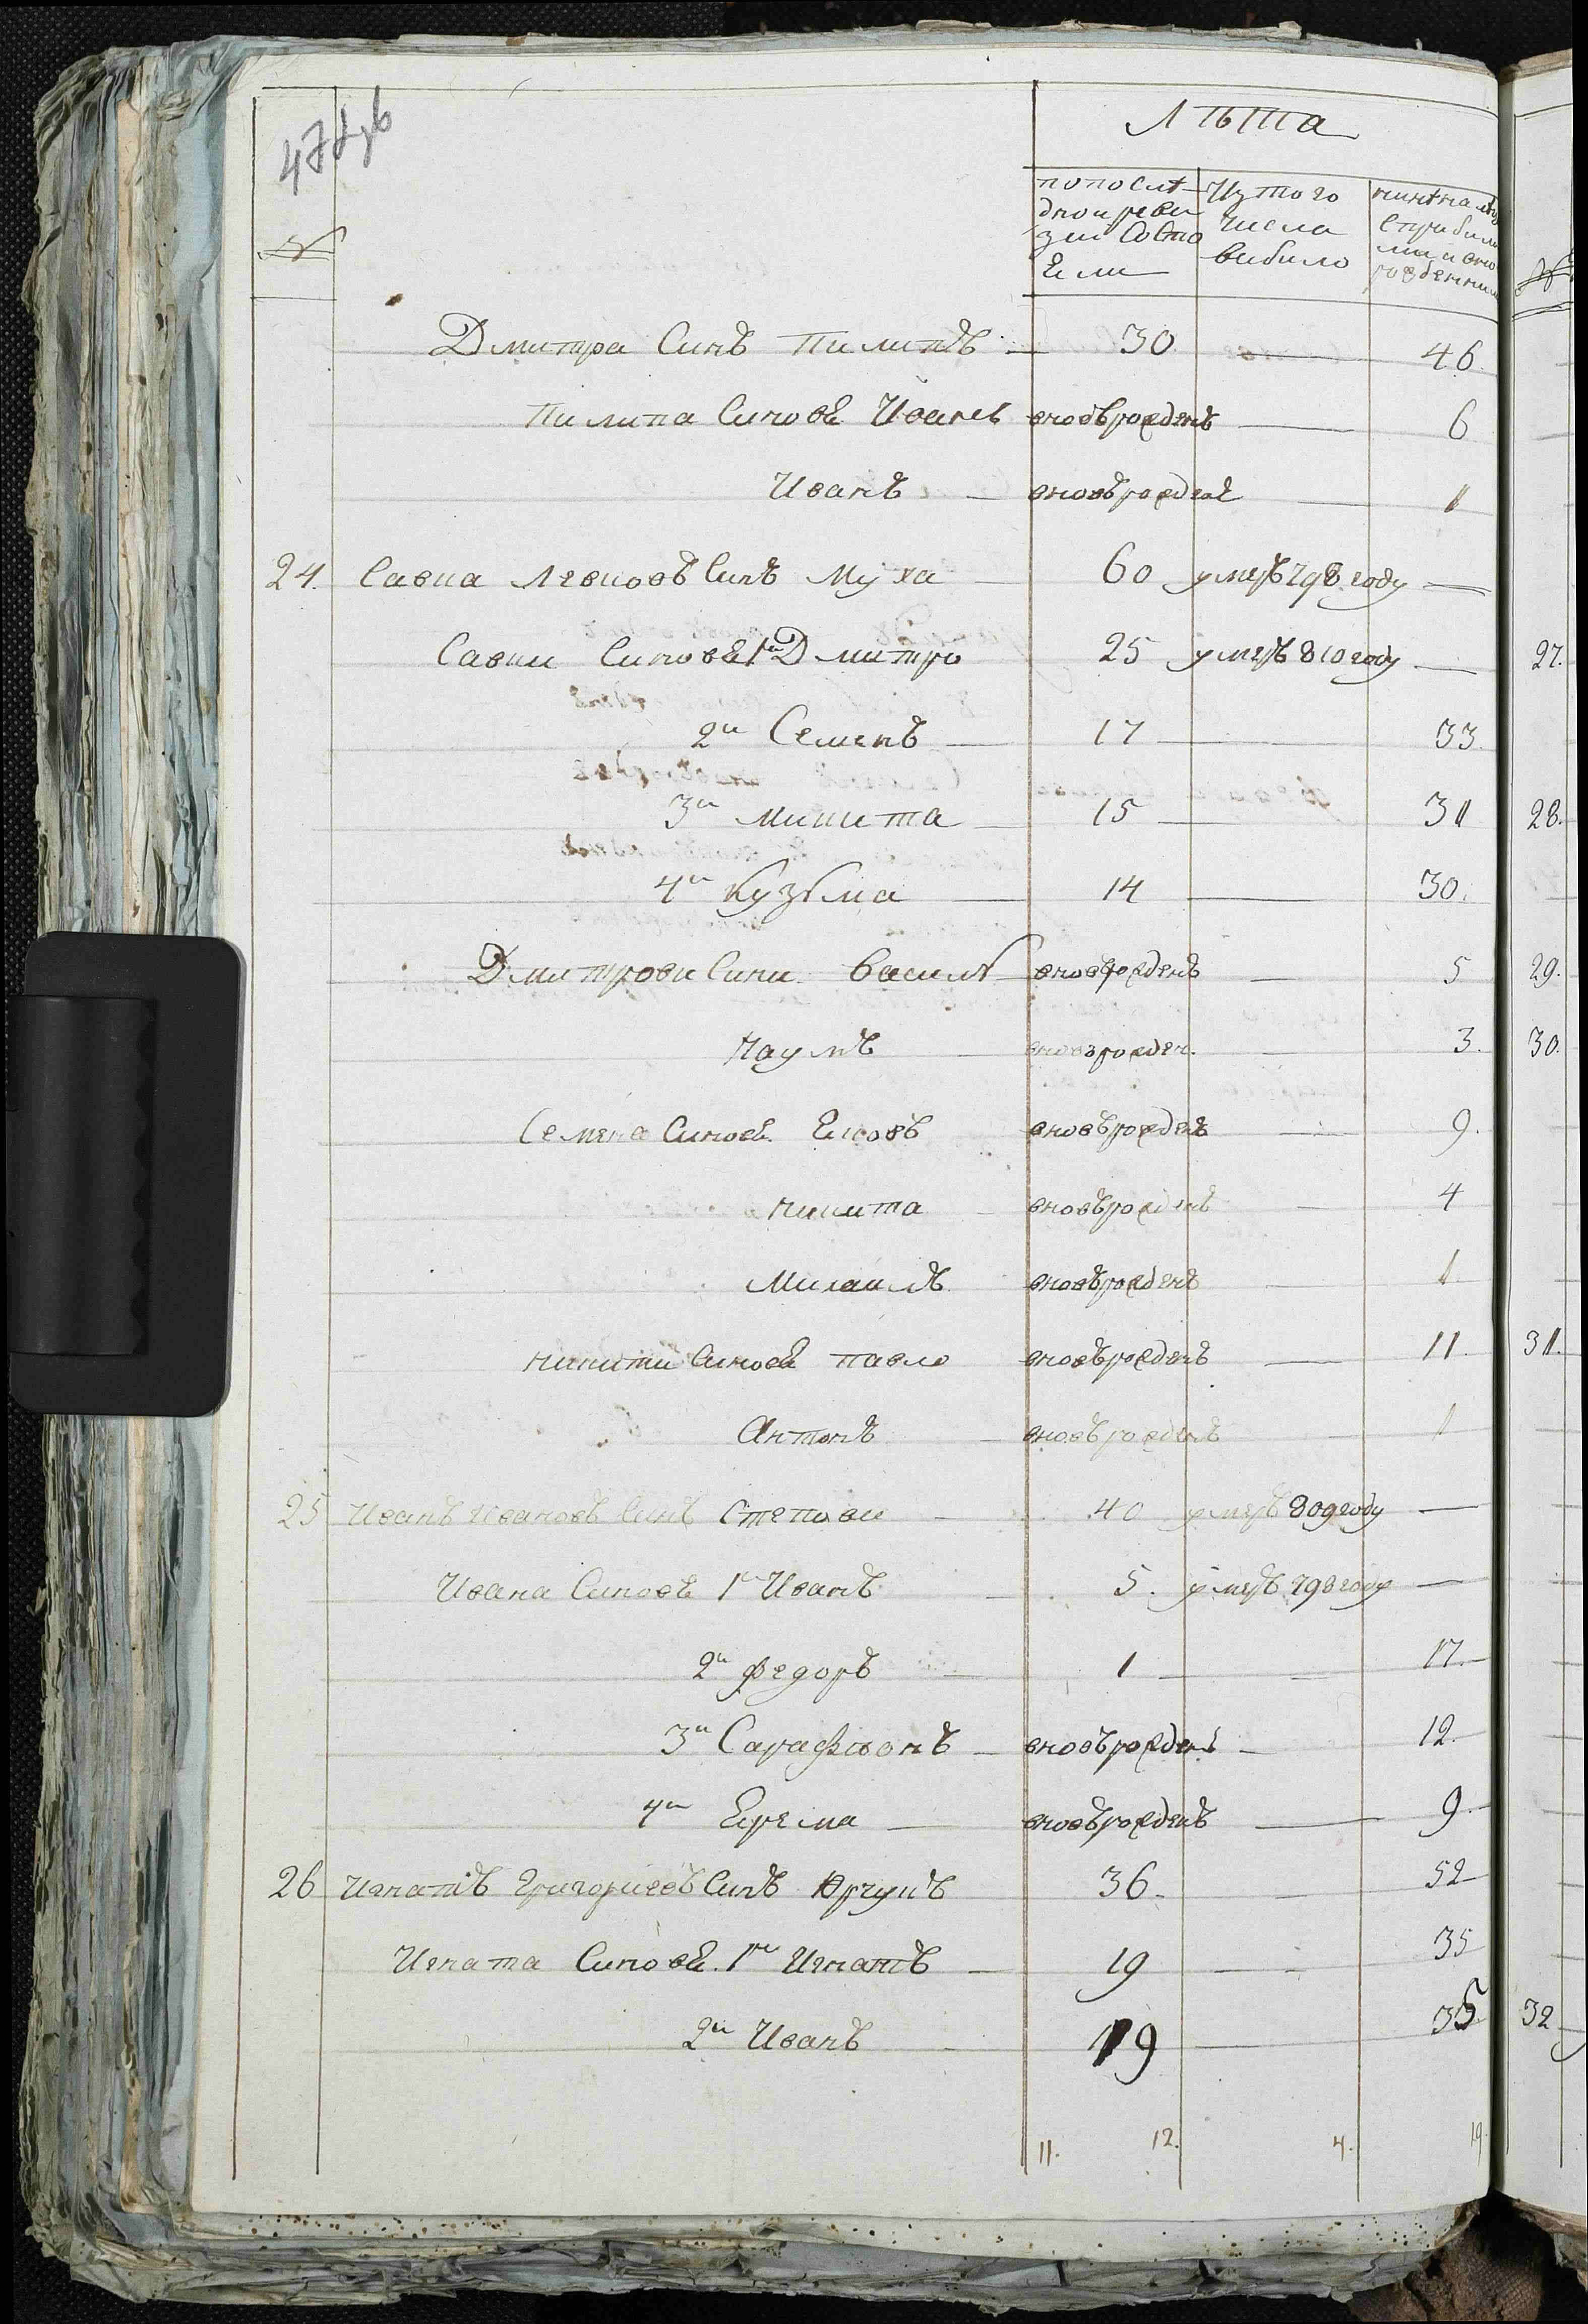 47 зв
Лѣта
№
попослѣ
дной реви
зии Состо
Ели
Изтого
числа
выбыло
нынѣ на лицо
Сприбылы
ми и вно
рожденным
Дмитра Синъ Пилипъ 30 — 46.
Пилипа Синовя Иванъ вновьрожденъ — 6
Иванъ — вновьрожденъ 1
24. Савка Левковъ Синъ Муха 60 умеръ 798 году —
Савки Синовя 1й Дмитро 25 умеръ 810 году — 27.
2й Семенъ — 17 — 33.
3й Микита — 15 — 31 28.
4й Кузьма — 14 — 30.
Дмитрови Сини Василь вновьрожденъ — 5 29.
Наумъ вновърожден. 3. 30.
Семена Синовя Яковъ вновьрожденъ — 9.
Никита вновьрожденъ — 4
Михаилъ вновьрожденъ — 1.
Никити Синовя Павло вновьрожденъ — 11. 31.
Антонъ вновьрожденъ 1
25 Иванъ Ивановъ Синъ Степови 40 умеръ 809 году —
Ивана Синовя 1й Иванъ 5. умеръ 798 году —
2й Федоръ — 1 — 17.
3й Сарафионъ — вновьрожденъ — 12.
4й Ерема — вновьрожденъ — 9.
26 Игнатъ Григориевъ Синъ 36. — 52
Игната Синовя. 1й Игнатъ — 19 — 35
2й Иванъ 19 — 35 32
11. 12. 4. 19.